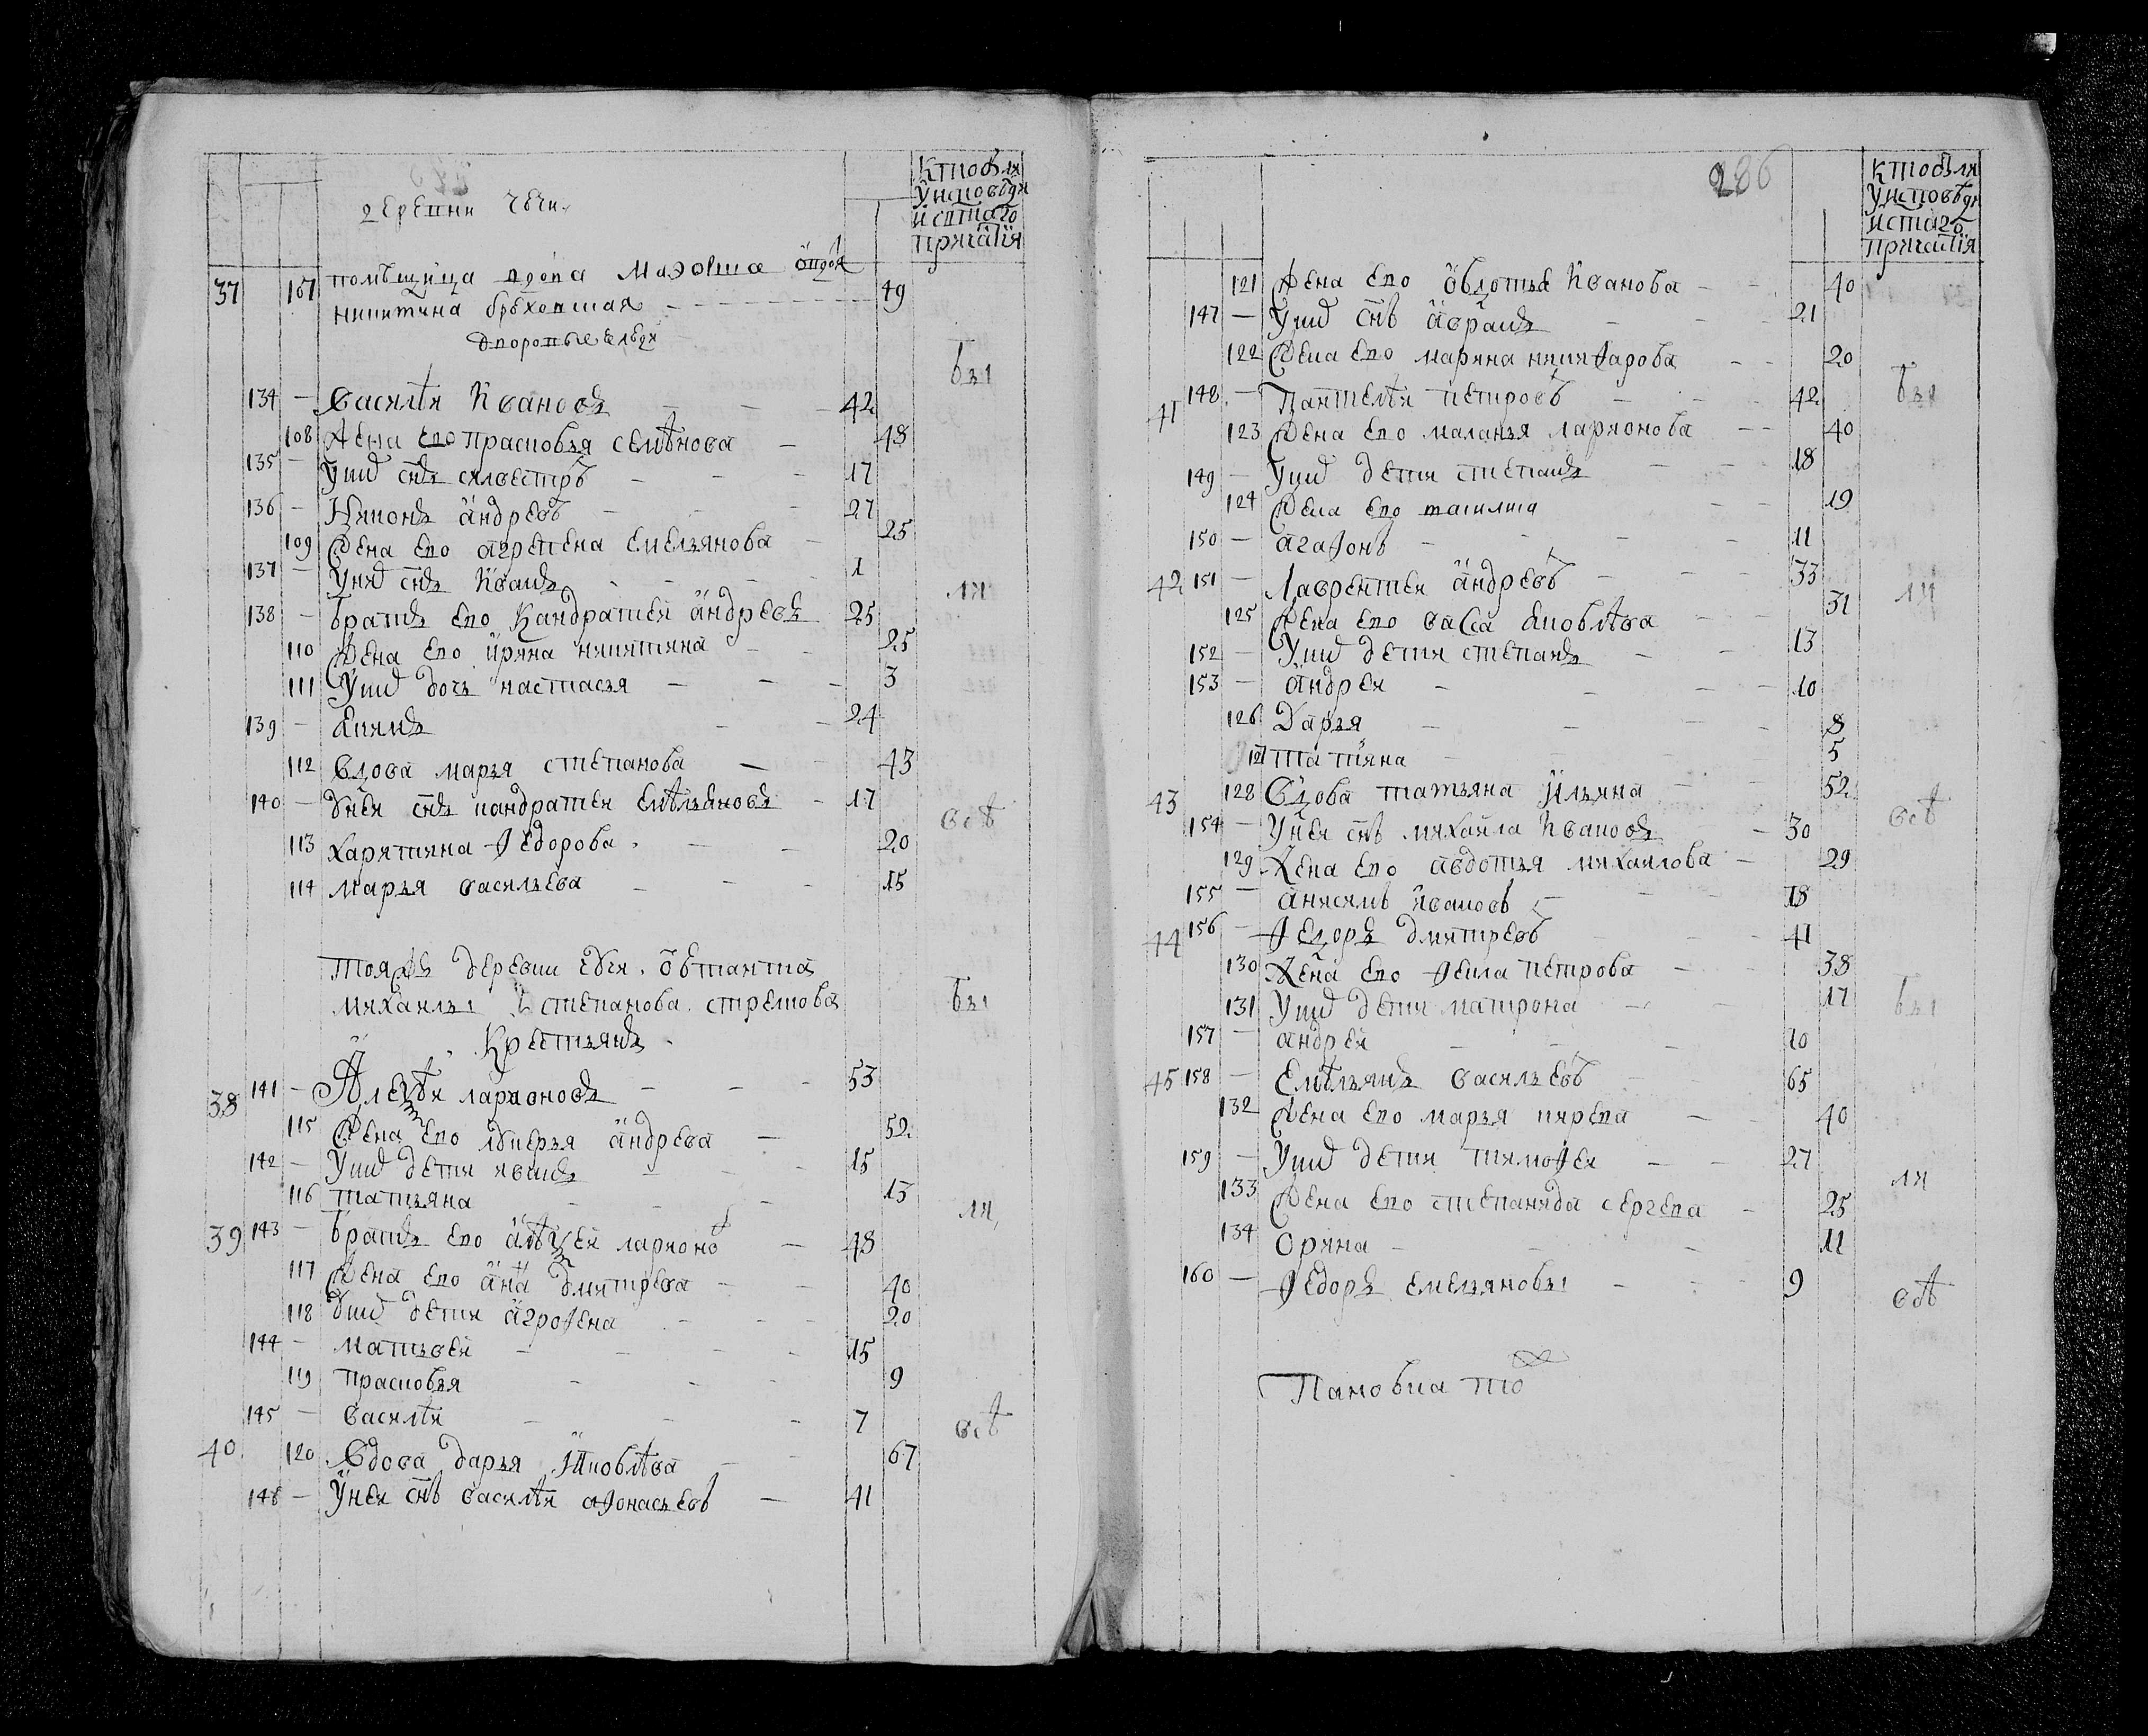 Кто бѣля
Унсповѣдя
и стаго
причастїя
Деревни
37 107 помѣщица вдова
никитина 49
дворовые люди
были
134 — Василѣй Ивановъ 42
108 Жена ево Прасковья Семѣнова 48
135 — У них снъ Силвестръ 17
136 — Никонъ Андреевъ 27
109 Жена ево Агрепена Емельянова 25
137 — У них снъ Иванъ 1
138 — братъ ево Кандратей Андреевъ 25
110 Жена ево Ирина Никитина 25
111 У них дочь Настасья 3
139 — Екимъ 24
112 Вдова Марья Степанова 43
140 — У нея снъ Кандратей Емѣльяновъ 17
113 Харитина Федорова 20
114 Марья Васильева 15
Тояже деревни
Михаилы Степанова
Крестьянъ
38 141 — Алеѯѣй Ларионовъ 53
115 Жена ево Лукерья Андреева 52
142 — У них дети Иванъ 15
116 Татьяна 13
39 143 — братъ ево Алѣѯей Ларионо 48
117 Жена ево Анна Дмитрева 40
118 У них дети Агрофена 20
144 — Матьвей 15
119 Прасковья 9
145 — Василѣй 7
40 120 Вдова Дарья Яковлѣва 67
146 — У нея снъ Василѣй Афонасьевъ 41
всѣ
286
Кто были
У исповѣди
и стаго
причастїя
121 Жена ево Овдотья Иванова 40
147 — У них снъ Абрамъ 21
122 Жена ево Марина Никифорова 20
41 148 — Пантелѣй Петровъ 42
123 Жена ево Маланья Ларионова 40
были
149 — У них дети Степанъ 18
124 Жена ево 19
150 — Агафонъ 11
42 151 — Лаврентей Андреевъ 33
125 Жена ево Васса Яковлѣва 31
152 — У них дети Степанъ 13
153 — Андрей 10
126 Дарья 8
127 Татияна 5
43 128 Вдова Татьяна Ильина 52
154 — У нея снъ Михайла Ивановъ 30
всѣ
129 Жена ево Авдотья Михаилова 29
155 — Анисимъ Ивановъ 18
44 156 — Федоръ Дмитревъ 41
130 Жена ево Фекла Петрова 38
131 У них дети Матрона 17
157 — Андрей 10
45 158 — Емѣльянъ Васильевъ 65
132 Жена ево Марья 40
159 — У них дети Тимофей 27
133 Жена ево Степанида Сергева 25
134 Орина 11
160 — Федоръ Емельяновы 9
всѣ